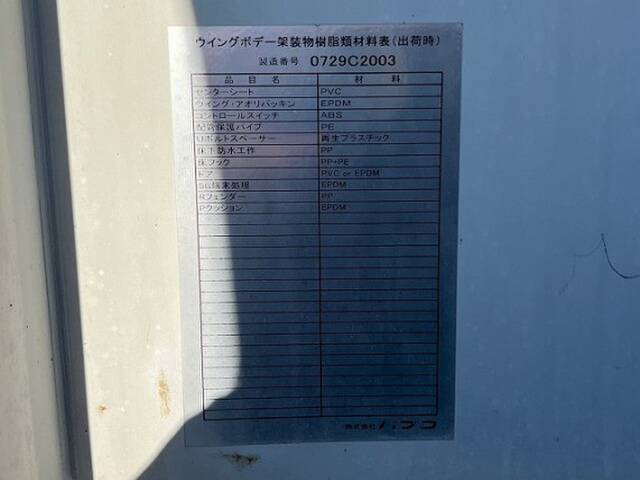 ウイングボデー架装物樹脂類材料表(出荷時)
製造番号 0729C2003
品目名 材料
センターシート PVC
ウイング・アオリパッキン EPDM
コントロールスイッチ ABS
配管保護パイプ PE
Uボルトスペーサー 再生プラスチック
床下防水工作 PP
床フック PP+PE
ドア PVC or EPDM
SG端末処理 EPDM
Rフェンダー PP
Pクッション EPDM
株式会社パブコ